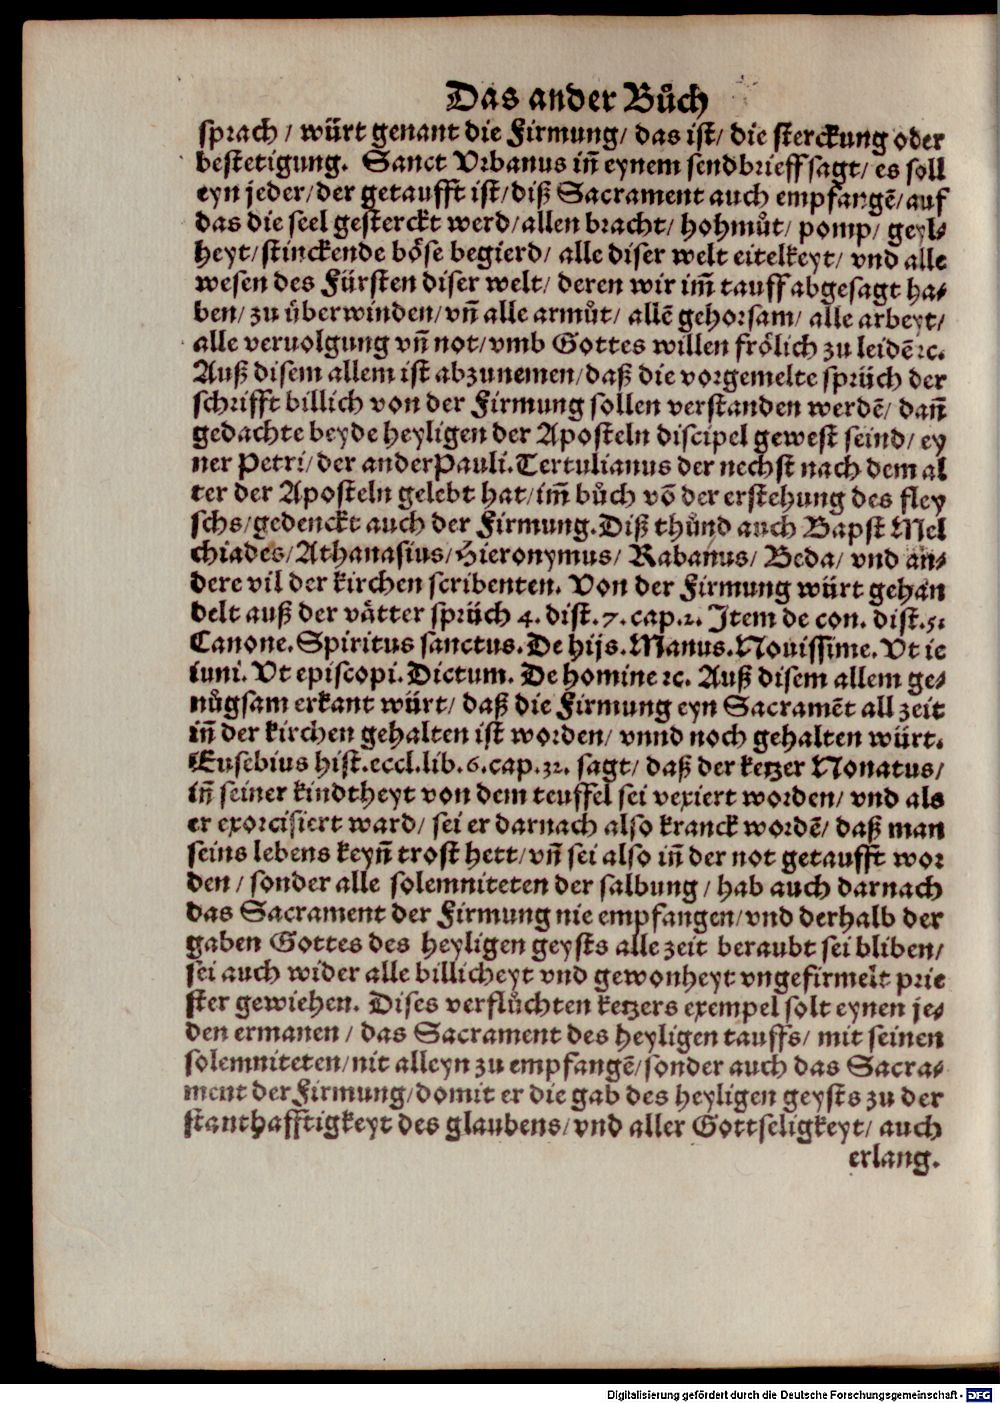 Das ander Bůch
sprach / würt genant die Firmung/ das ist/ die sterckung oder
bestetigung. Sanct Vrbanus inn̄ eynem sendbrieff sagt/ es soll
eyn jeder/ der getaufft ist/ diß Sacrament auch empfangē/ auf
das die seel gesterckt werd/ allen bracht/ hohmůt/ pomp/ geyl⸗
heyt/ stinckende böse begierd/ alle diser welt eitelkeyt/ vnd alle
wesen des Fürsten diser welt/ deren wir im̄ tauff abgesagt ha⸗
ben/ zu überwinden/ vn̄ alle armůt/ allē gehorsam/ alle arbeyt/
alle veruolgung vn̄ not/ vmb Gottes willen frölich zu leidē ⁊c.
Auß disem allem ist abzunemen/ daß die vorgemelte sprüch der
schrifft billich von der Firmung sollen verstanden werdē/ dan̄
gedachte beyde heyligen der Aposteln discipel gewest seind/ ey
ner Petri/ der ander Pauli. Tertulianus der nechst nach dem al
ter der Aposteln gelebt hat/ im̄ bůch vō der erstehung des fley
schs/ gedenckt auch der Firmung. Diß thůnd auch Bapst Mel
chiades/ Athanasius/ Hieronymus/ Rabanus/ Beda/ vnd an⸗
dere vil der kirchen scribenten. Von der Firmung würt gehan
delt auß der vätter sprüch 4. dist. 7. cap. 2. Item de con. dist. 5.
Canone. Spiritus sanctus. De hijs. Manus. Nouissime. Vt ie
iuni. Vt episcopi. Dictum. De homine ⁊c. Auß disem allem ge⸗
nůgsam erkant würt/ daß die Firmung eyn Sacramēt all zeit
in̄ der kirchen gehalten ist worden/ vnnd noch gehalten würt.
Eusebius hist. eccl. lib. 6. cap. 32. sagt/ daß der ketzer Nonatus/
in̄ seiner kindtheyt von dem teuffel sei vexiert worden/ vnd als
er exorcisiert ward/ sei er darnach also kranck wordē/ daß man
seins lebens keyn̄ trost hett/ vn̄ sei also in̄ der not getaufft wor
den / sonder alle solemniteten der salbung / hab auch darnach
das Sacrament der Firmung nie empfangen/ vnd derhalb der
gaben Gottes des heyligen geysts alle zeit beraubt sei bliben/
sei auch wider alle billicheyt vnd gewonheyt vngefirmelt prie
ster gewiehen. Dises verflůchten ketzers exempel solt eynen je⸗
den ermanen / das Sacrament des heyligen tauffs/ mit seinen
solemniteten/ nit alleyn zu empfangē/ sonder auch das Sacra⸗
ment der Firmung/ domit er die gab des heyligen geysts zu der
stanthafftigkeyt des glaubens/ vnd aller Gottseligkeyt/ auch
erlang.
Digitalisierung gefördert durch die Deutsche Forschungsgemeinschaft - DFG